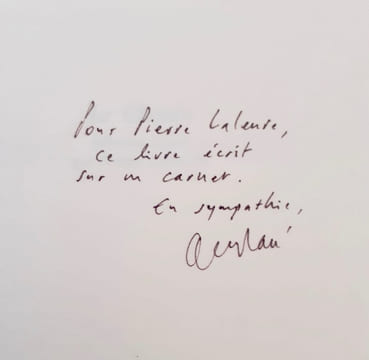 Pour Pierre Laleure,
ce livre écrit
sur un carnet.
En sympathie,